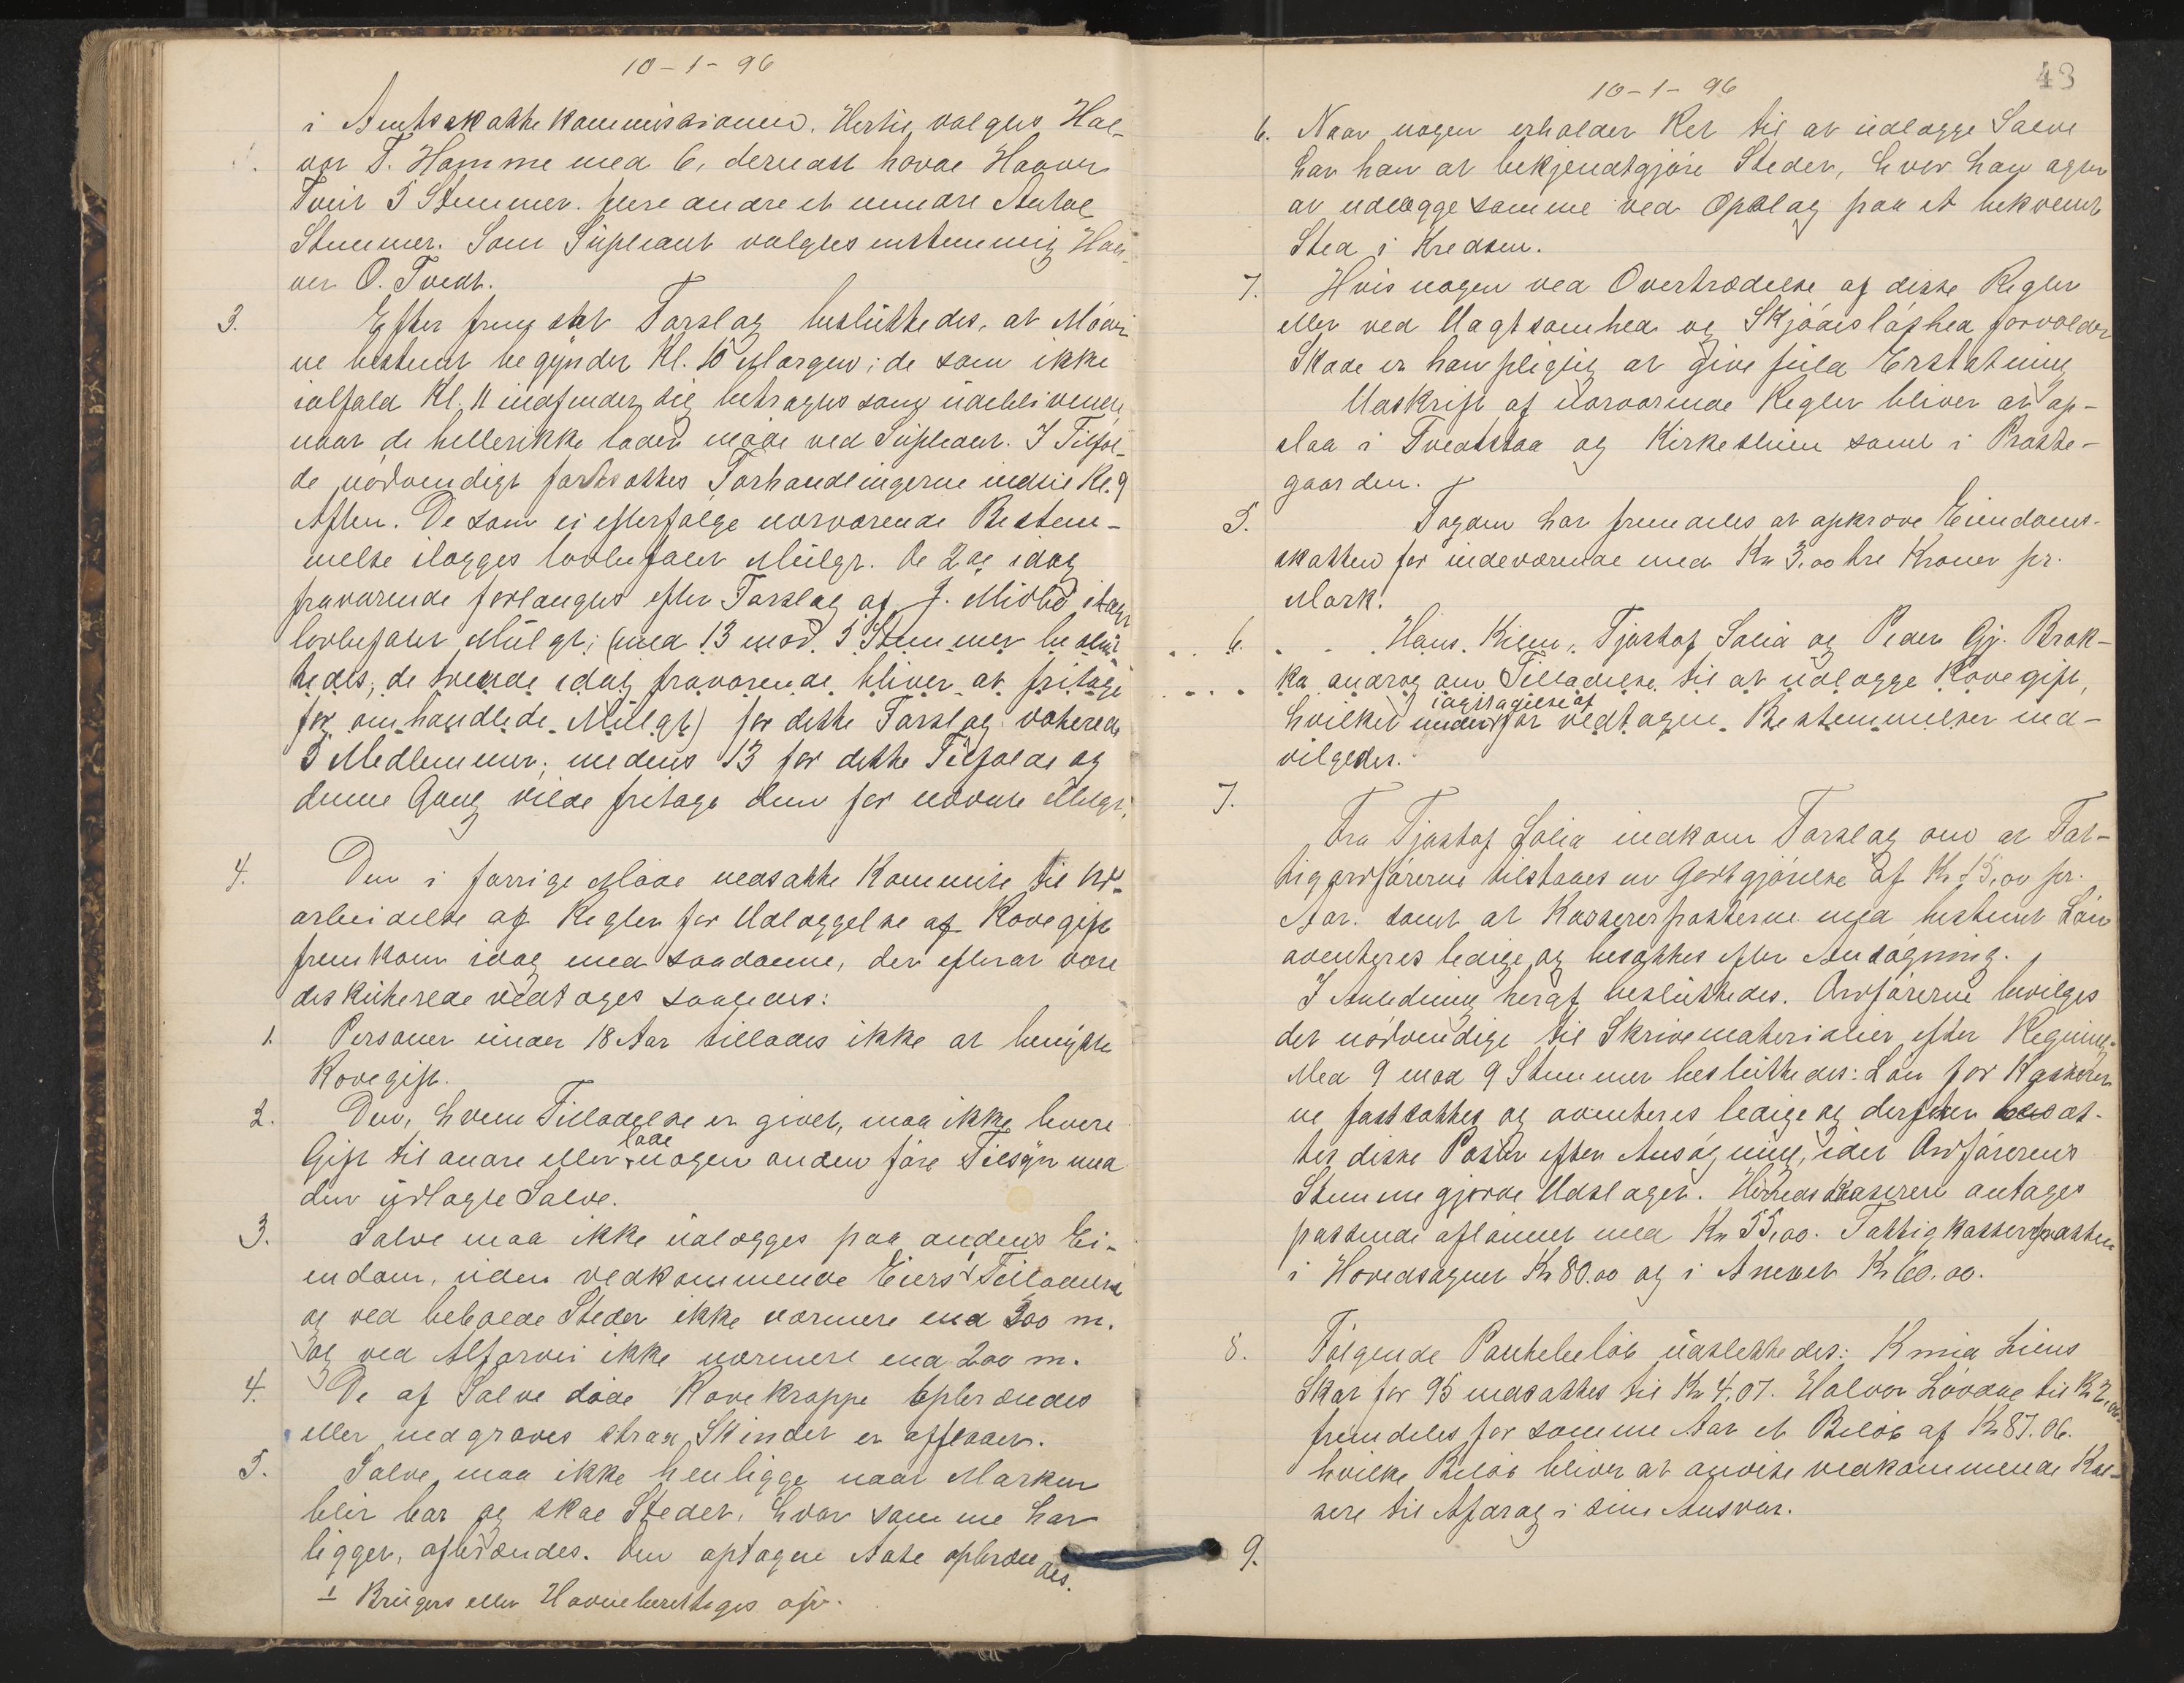 10-1-96
i Amtsskattekommissionen. Hertil valgtes Hal-
vor T. Hamme med 6, dernæst havde Haavor
Tveit 5 Stemmer. flere andre et mindre Antal
Stemmer. Som Supleant valgtes enstemmig Hal-
vor O. Tvedt.
3. Efter fremsat Forslag besluttedes, at Møder-
ne bestemt begynder Kl. 10 Morgen; de som ikke
ialfald Kl. 11 indfinder sig betragtes som udeblivende,
naar de hellerikke lader møde ved Supleant. I Tilfæl-
de nødvendigt fortsættes Forhandlingerne indtil Kl. 9
Aften. De som ei efterfølge nærværende Bestem-
melse ilægges lovbefalet Mulgt. De 2de idag
fraværende forlanges efter Forslag af J. Midbø ilagt
lovbefalet Mulgt; (med 13 mod 5 Stemmer beslut-
tedes, de tvende idag fraværende bliver at fritage
for omhandlede Mulgt) for dette Forslag voterede
5 Medlemmer, medens 13 for dette Tilfælde og
denne Gang vilde fritage dem for nævnte Mulgt.
4. Den i forrige Møde nedsatte Kommite til Ud-
arbeidelse af Regler for Udlæggelse af Rævegift
fremkom idag med saadanne, der efterat være
diskuterede vedtoges saaledes:
1. Personer under 18 Aar tillades ikke at benytte
Rævegift.
2. Den, hvem Tilladelse er givet, maa ikke levere
Gift til andre eller lade nogen anden føre Tilsyn med
den udlagte Salve.
3. Salve maa ikke udlægges paa andens Ei-
endom, uden vedkommende Eiers 1 Tilladelse
og ved beboede Steder ikke nærmere end 300 m.
og ved Alfarvei ikke nærmere end 200 m.
4. De af Salve døde Rævekroppe opbrændes
eller nedgraves strax Skindet er afflaaet.
5. Salve maa ikke henligge naar Marken
blir bar og skal Stedet, hvor samme har
ligget, afbrændes. Den optagne Aate opbrændes.
1 Brugers eller Havneberettiges
10-1-96
43
6. Naar nogen erholder Ret til at udlægge Salve
har han at bekjendtgjøre Stedet, hvor han agter
at udlægge samme ved Opslag paa et bekvemt
Sted i Kredsen.
7. Hvis nogen ved Overtrædelse af disse Regler
eller ved Uagtsomhed og Skjødesløshed forvolder
Skade er han pligtig at give fuld Erstatning
Udskrift af nærværende Regler bliver at op-
slaa i Tvedtstaa og Kirkestuen samt i Præste-
gaarden.
5. Fogden har fremdeles at opkræve Eiendoms-
skatten for indeværende med Kr 3,00 tre Kroner pr.
Mark.
6. Hans Kilen, Tjøstof Solid og Peder Gj. Brok-
ka androg om Tilladelse til at udlægge Rævegift,
hvilket under iagttagelse af før vedtagne Bestemmelser ind-
vilgedes.
7.
Fra Tjøstof Solid indkom Forslag om at Fat-
tigordførerne tilstaaes en Godtgjørelse af Kr 15,00 pr.
Aar. samt at Kassererposterne med bestemt Løn
averteres ledige og besættes efter Ansøgning.
I Anledning heraf besluttedes. Ordførerne bevilges
det nødvendige til Skrivematerialier efter Regning.
Med 9 mod 9 Stemmer besluttedes: Løn for Kasserer-
ne fastsættes og averteres ledige og derefter besæt-
tes disse Poster efter Ansøgning, idet Ordførerens
Stemme gjorde Udslaget. Herredskasereren antages
passende aflønnet med Kr 55,00. Fattigkassererposten
i Hovedsognet Kr 80.00 og i Annexet Kr 60.00.
8. Følgende Panteheløb udslettedes: Knud Liens
Skat for 95 nedsættes til Kr 4.07. Halvor Løvdal til Kr 2,00
fremdeles for samme Aar et Beløb af Kr 87.06.
hvilke Beløb bliver at anvise vedkommende Kas-
sere til Afdrag i sine Ansvar.
9.